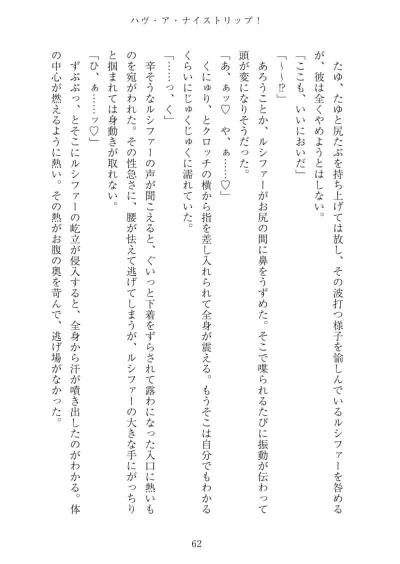 ハヴ・ア・ナイストリップ！
たゆ、たゆと尻たぶを持ち上げては放し、その波打つ様子を愉しんでいるルシファーを咎める
が、彼は全くやめようとはしない。
「ここも、いいにおいだ」
「〜〜⁉」
あろうことか、ルシファーがお尻の間に鼻をうずめた。そこで喋られるたびに振動が伝わって
頭が変になりそうだった。
「あ、ぁッ♡　や、ぁ……♡」
くにゅり、とクロッチの横から指を差し入れられて全身が震える。もうそこは自分でもわかる
くらいにじゅくじゅくに濡れていた。
「……っ、く」
辛そうなルシファーの声が聞こえると、ぐいっと下着をずらされて露わになった入口に熱いも
のを宛がわれた。その性急さに、腰が怯えて逃げてしまうが、ルシファーの大きな手にがっちり
と掴まれては身動きが取れない。
「ひ、ぁ……ッ♡」
ずぷぷっ、とそこにルシファーの屹立が侵入すると、全身から汗が噴き出したのがわかる。体
の中心が燃えるように熱い。その熱がお腹の奥を苛んで、逃げ場がなかった。
62